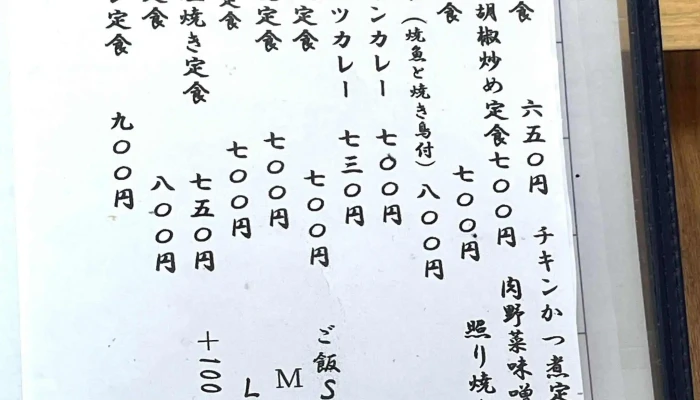 食 六五〇円
胡椒炒め定食 七〇〇円
食 七〇〇円
（焼魚と焼き鳥付） 八〇〇円
ンカレー 七〇〇円
ツカレー 七三〇円
定食 七〇〇円
定食 七〇〇円
食 七〇〇円
焼き定食 七五〇円
食 八〇〇円
定食 九〇〇円
チキンかつ煮定
肉野菜味噌
照り焼
ご飯S
M
L
+100